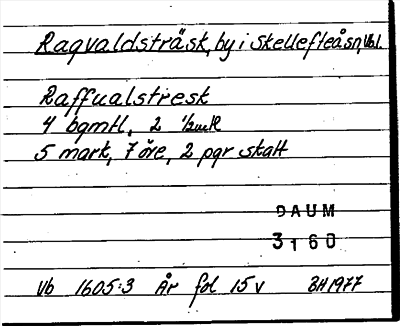 Ragvaldsträsk, by i Skellefteå sn, Vb l.
Raffualstresk
4 bgmtl, 2 1/2 mtl
5 mark, 7 öre, 2 pgr skatt
DAUM
3160
Vb 1605:3 År fol 15 v BH 1977